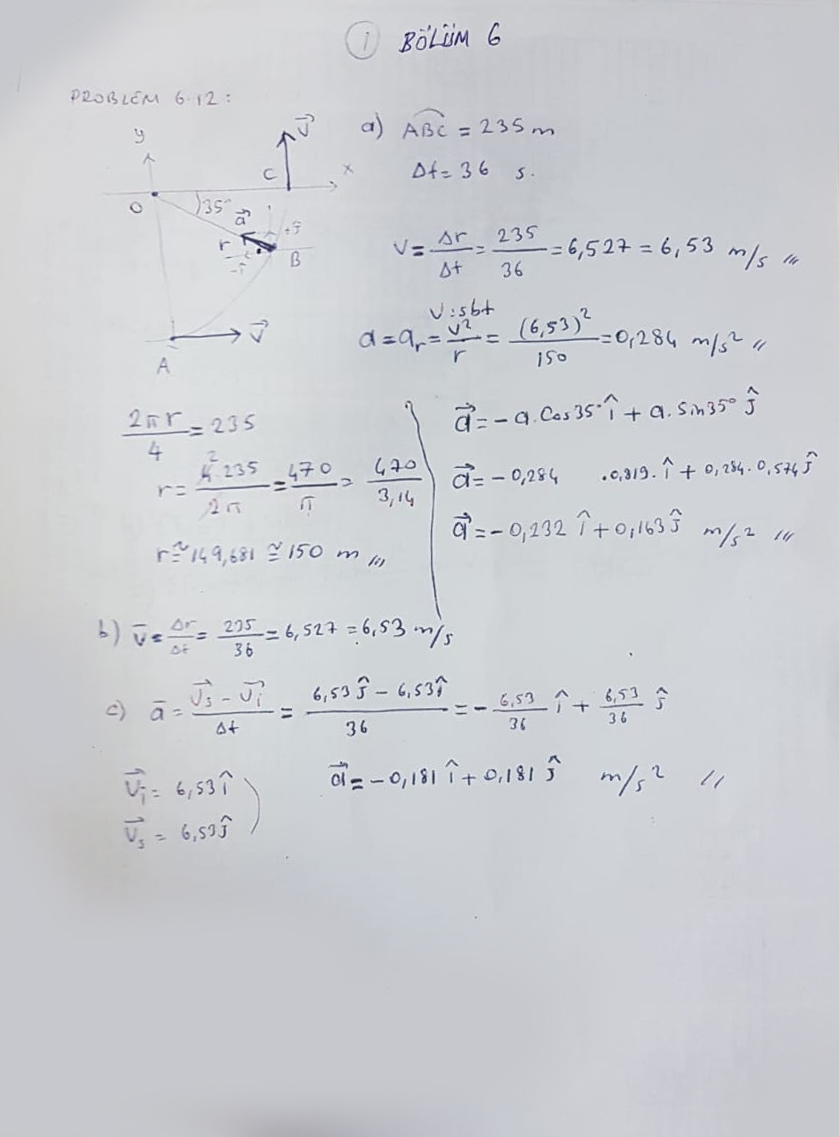 ① BÖLÜM 6
PROBLEM 6.12:
y
x
O
35°
a⃗
r
+ĵ
-î
B
C
V⃗
A
V⃗
a) ABC = 235 m
Δt = 36 s.
V = Δr/Δt = 235/36 = 6,527 = 6,53 m/s //
V: sbt
a = ar = V²/r = (6,53)²/150 = 0,284 m/s² //
2πr/4 = 235
r = 4.235/2π = 470/π = 470/3,14
2
r ≅ 149,681 ≅ 150 m ///
a⃗ = - a.Cos35° î + a.Sin35° ĵ
a⃗ = - 0,284 .0,819. î + 0,284. 0,574 ĵ
a⃗ = - 0,232 î + 0,163 ĵ m/s² ///
b) V̄ = Δr/Δt = 235/36 = 6,527 = 6,53 m/s
c) ā = (V⃗s - V⃗i)/Δt = (6,53 ĵ - 6,53 î)/36 = - 6,53/36 î + 6,53/36 ĵ
V⃗i = 6,53 î
a⃗ = - 0,181 î + 0,181 ĵ m/s² //
V⃗s = 6,53 ĵ